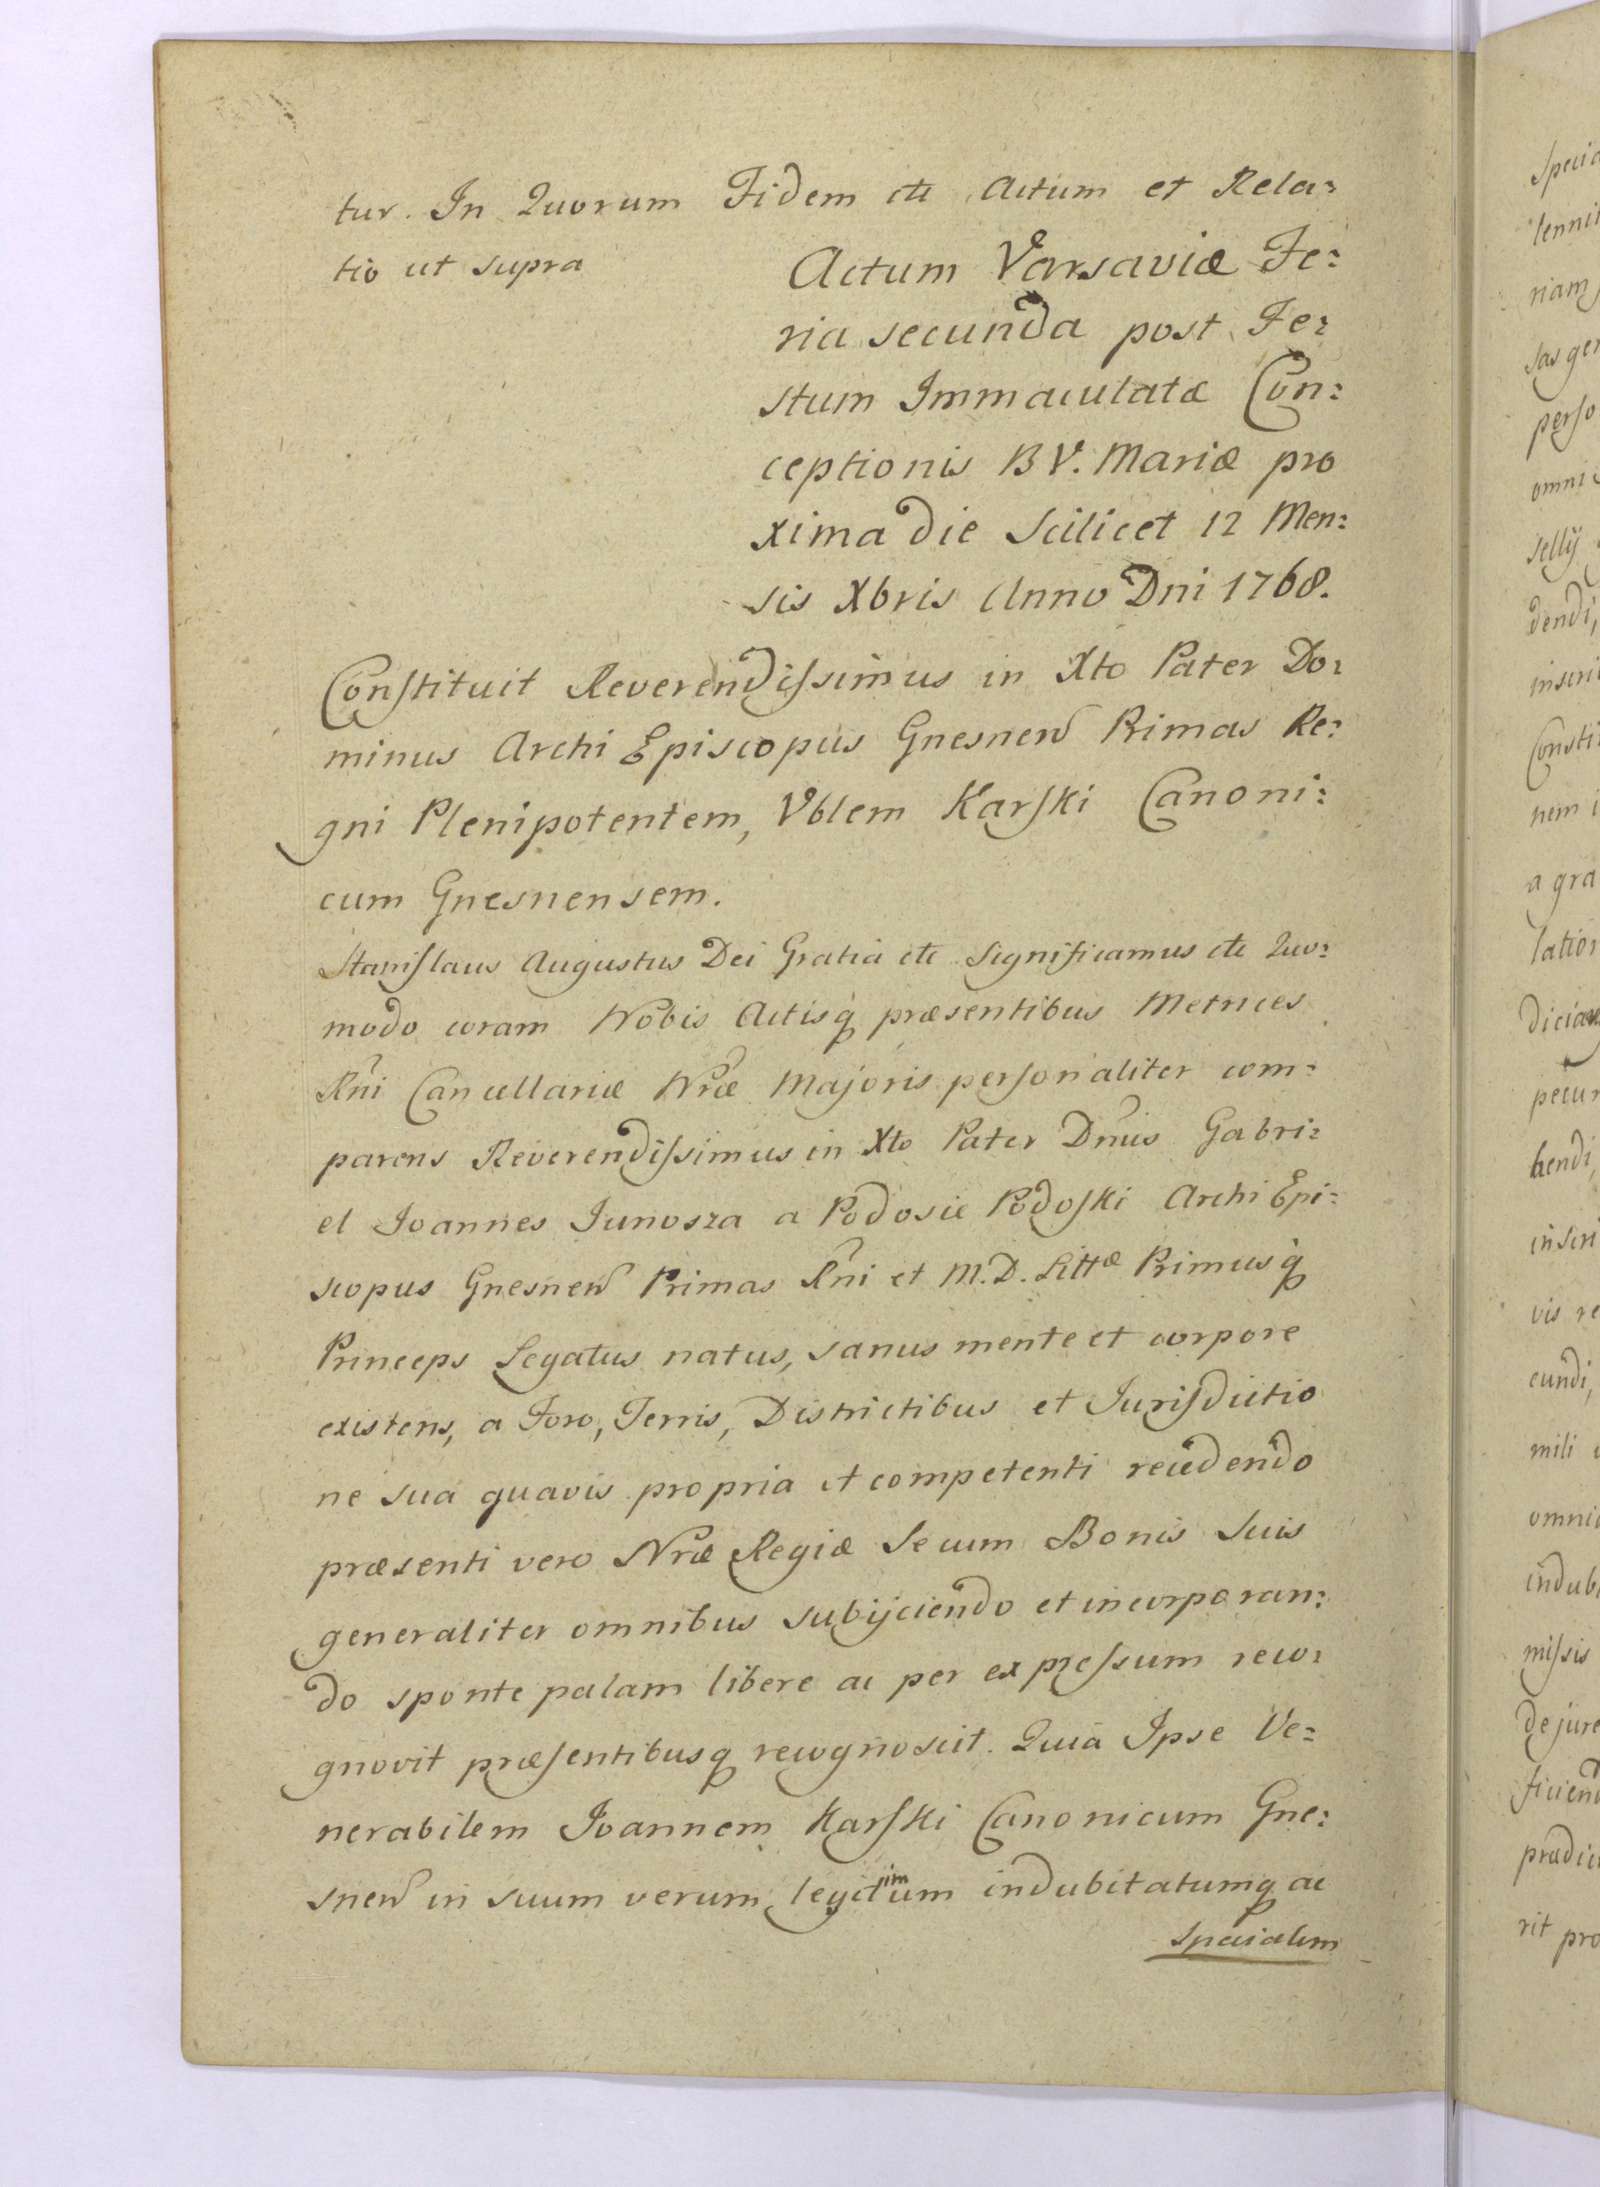 tur. In Quorum Fidem etc Actum et Rela:
tio ut supra
Actum Varsaviæ Fe:
ria secunda post Fe:
stum Immaculatæ Con:
ceptionis B V. Mariæ pro
xima die Scilicet 12 Men:
sis Xbris Anno Dni 1768.
Constituit Reverendissimus in Xto Pater Do:
minus Archi Episcopus Gnesnen Primas Re:
gni Plenipotentem, Vblem Karski Canoni:
cum Gnesnensem.
Stanislaus Augustus Dei Gratia etc Significamus etc Quo:
modo coram Nobis Actisq præsentibus Metrices
Rni Cancellariæ Nræ Majoris personaliter com:
parens Reverendissimus in Xto Pater Dnus Gabri:
el Joannes Junosza a Podosie Podoski Archi Epi:
scopus Gnesnen Primas Rni et M. D. Littæ Primusq
Princeps Legatus natus, sanus mente et corpore
existens, a Foro, Terris, Districtibus et Jurisdictio
ne sua quavis propria et competenti recedendo
præsenti vero Nræ Regiæ Se cum Bonis Suis
generaliter omnibus subijciendo et incorporan:
do sponte palam libere ac per expressum reco:
gnovit præsentibusq recognoscit. Quia Ipse Ve:
nerabilem Joannem Karski Canonicum Gne:
snen in suum verum, legitimum indubitatumq ac
Specialem
Specia
lenni
riam
sas ge
perso
omni
selly
dendi,
inscri
Consti
nem i
a gra
lation
diciar
pecun
hendi,
inscri
vis re
cundi,
mili
omni
indub
missis
de jure
ficiend
prædic
rit pro